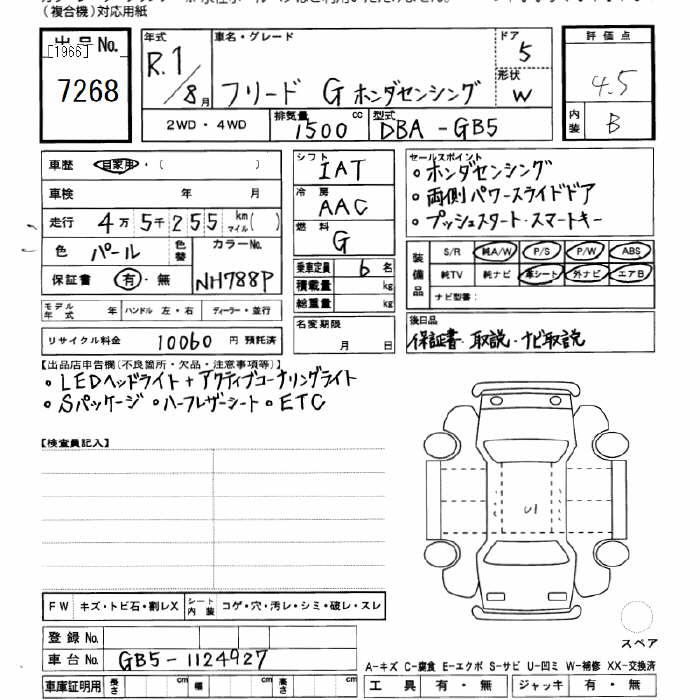 （複合機）対応用紙
出品No.
[1966]
7268
年式
R.1/8月
車名・グレード
フリード G ホンダセンシング
ドア
5
形状
W
評価点
4.5
内装
B
2WD・4WD
排気量
1500cc
型式
DBA-GB5
車歴 自家用・（ ）
車検 年 月
走行 4万5千255km マイル( )
色 パール 色替 カラーNo. NH788P
保証書 有・無
モデル年式 年 ハンドル 左・右 ディーラー・並行
リサイクル料金 10060 円 預託済
シフト IAT
冷房 AAC
燃料 G
乗車定員 6名
積載量 kg
総重量 kg
名変期限 月 日
セールスポイント
◦ ホンダセンシング
◦ 両側パワースライドドア
◦ プッシュスタート・スマートキー
装備品
S/R 純A/W P/S P/W ABS
純TV 純ナビ 革シート 外ナビ エアB
ナビ型番：
後日品
保証書・取説・ナビ取説
【出品店申告欄(不良箇所・欠品・注意事項等)】
◦ LEDヘッドライト+アクティブコーナリングライト
◦ Sパッケージ ◦ ハーフレザーシート ◦ ETC
【検査員記入】
U1
FW キズ・トビ石・割レX シート内装 コゲ・穴・汚レ・シミ・破レ・スレ
登録No.
車台No. GB5-1124927
車庫証明用 長さ cm 幅 cm 高さ cm
スペア
A-キズ C-腐食 E-エクボ S-サビ U-凹ミ W-補修 XX-交換済
工具 有・無 ジャッキ 有・無